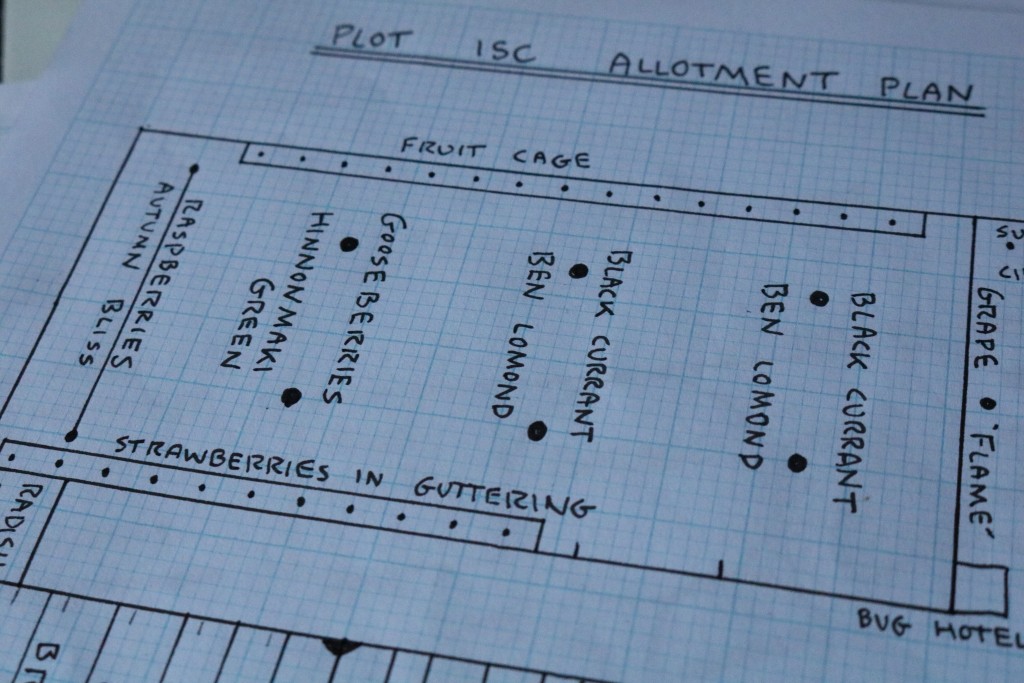 PLOT 15C ALLOTMENT PLAN
FRUIT CAGE
RASPBERRIES
AUTUMN BLISS
GOOSEBERRIES
HINNONMAKI
GREEN
BLACK CURRANT
BEN LOMOND
BLACK CURRANT
BEN LOMOND
GRAPE 'FLAME'
STRAWBERRIES IN GUTTERING
BUG HOTEL
RADISH